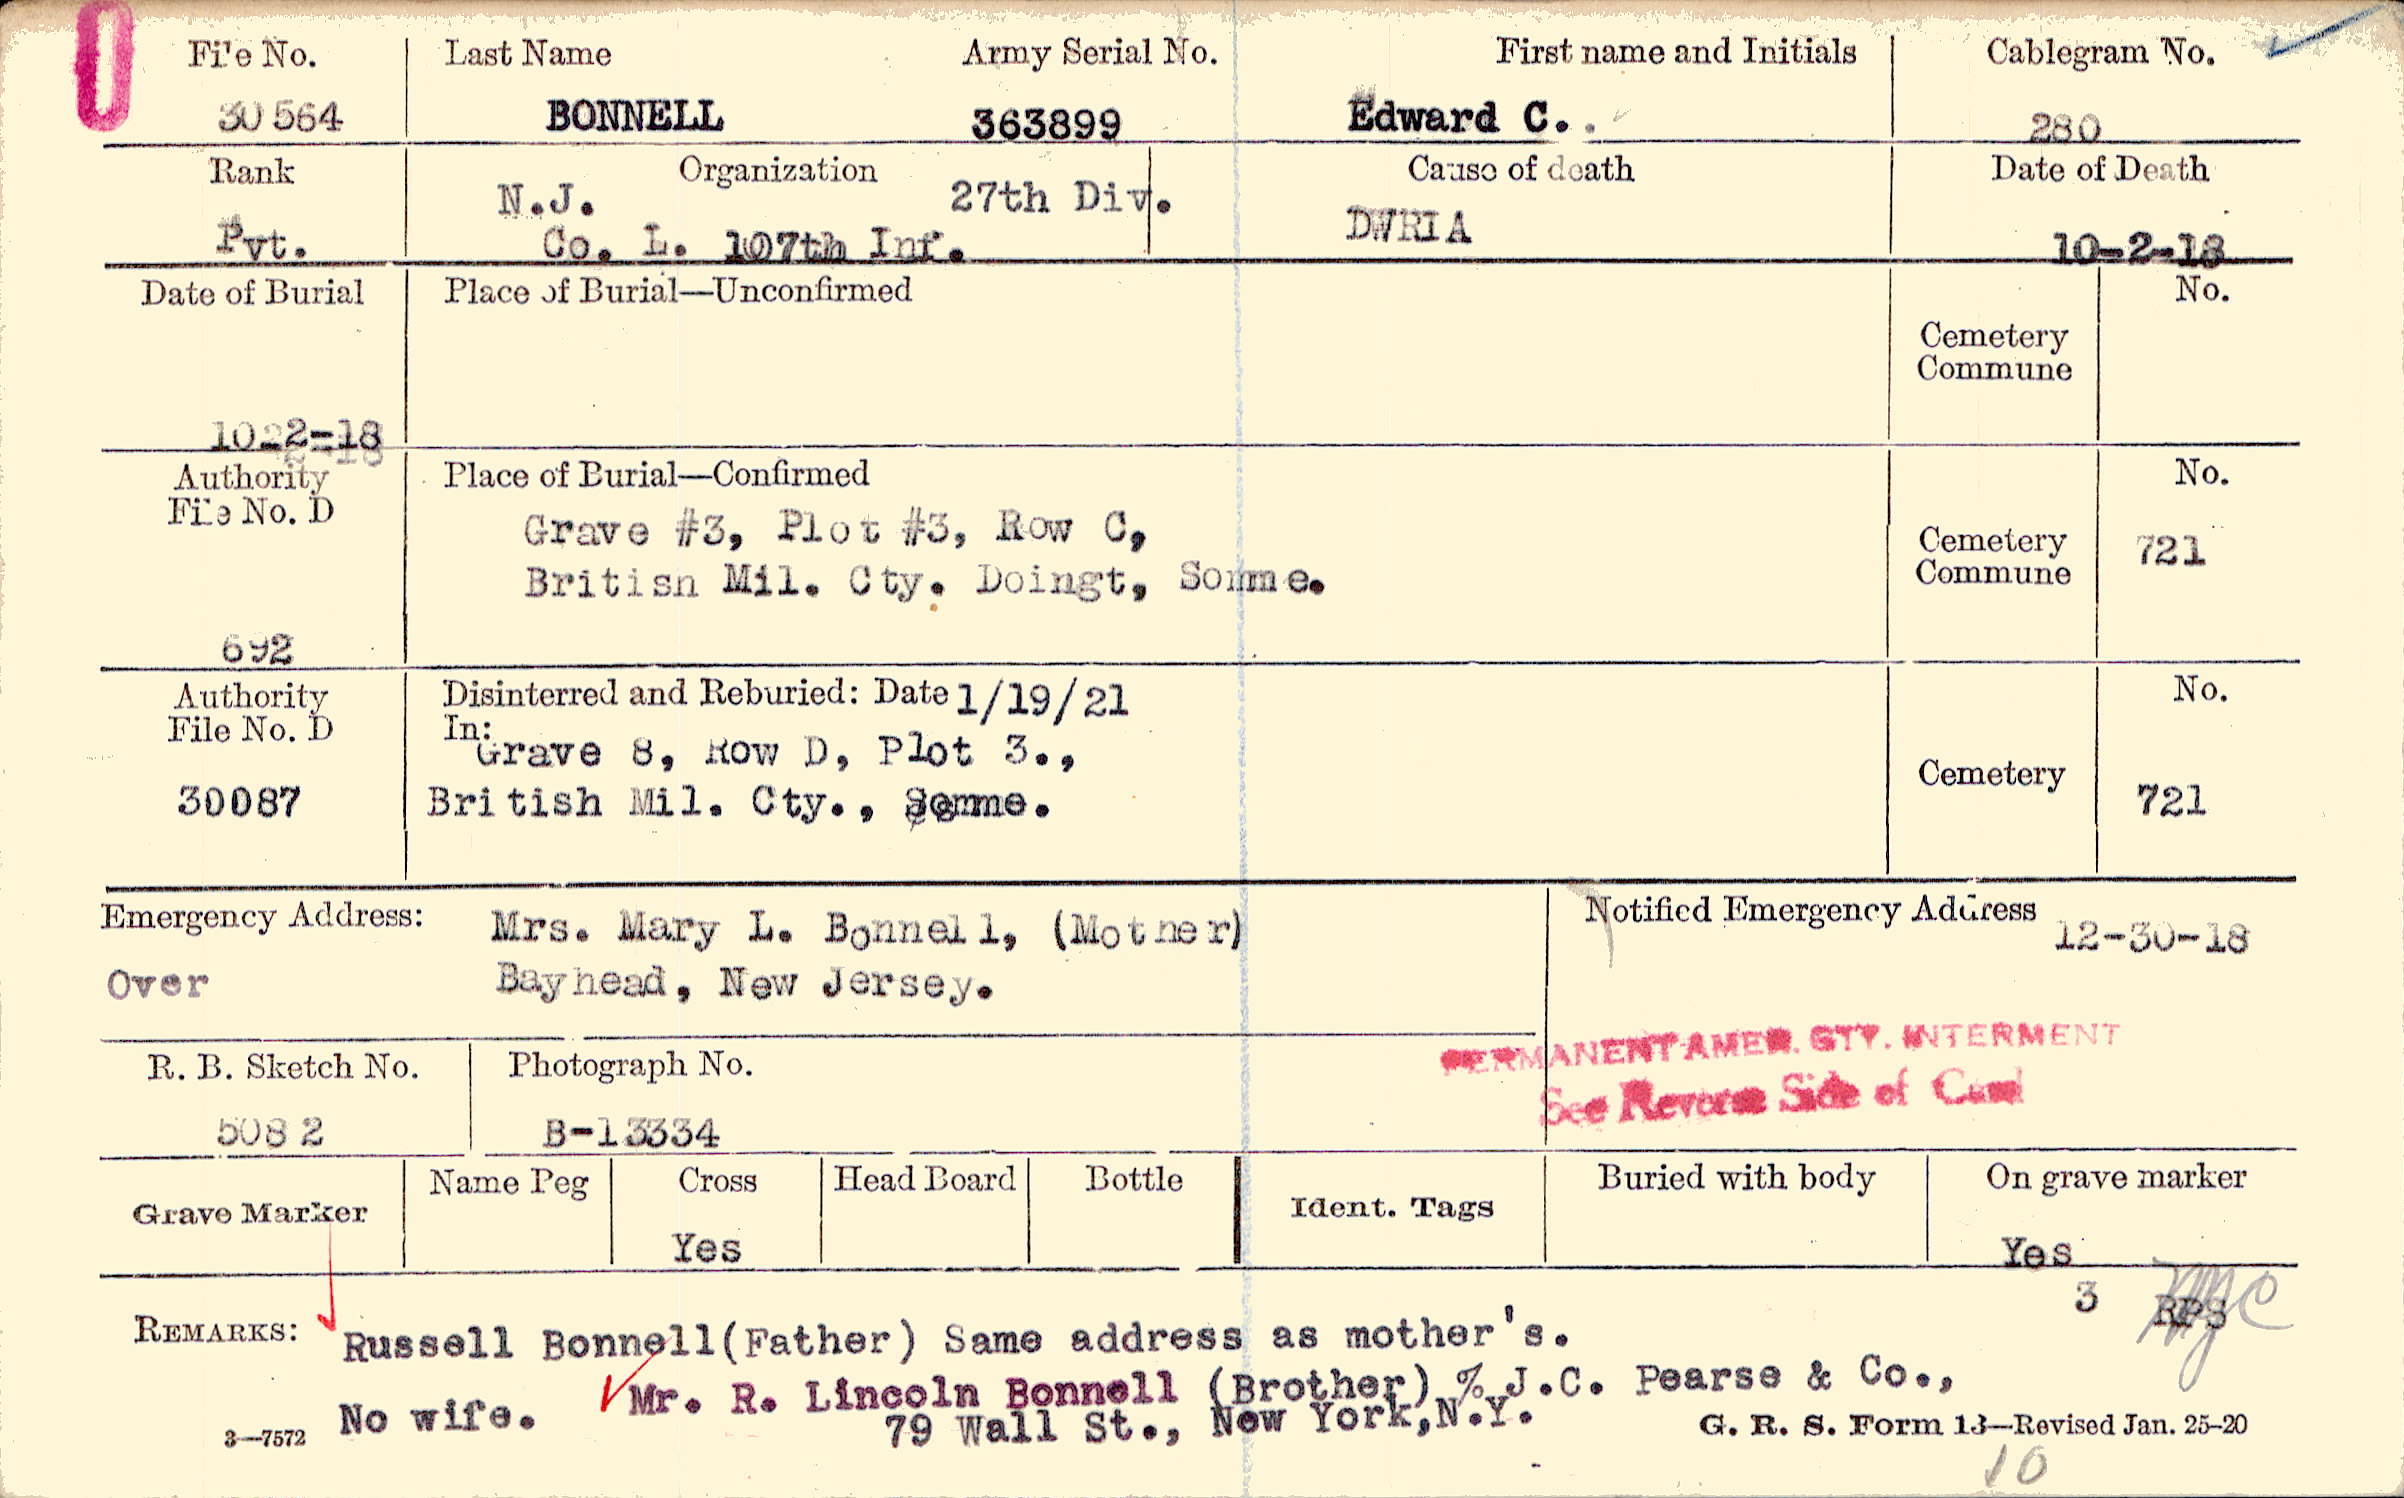 File No. Last Name Army Serial No. First name and Initials Cablegram No.
30564 BONNELL 363899 Edward C. 280
Rank Organization Cause of death Date of Death
N.J. 27th Div.
Pvt. Co. L. 107th Inf. DWRIA 10-2-18
Date of Burial Place of Burial—Unconfirmed No.
Cemetery
Commune
10-2-18
Authority Place of Burial—Confirmed No.
File No. D
Grave #3, Plot #3, Row C, Cemetery 721
British Mil. Cty. Doingt, Somme. Commune
692
Authority Disinterred and Reburied: Date 1/19/21 No.
File No. D In:
Grave 8, Row D, Plot 3., Cemetery
30087 British Mil. Cty., Somme. 721
Emergency Address: Mrs. Mary L. Bonnell, (Mother) Notified Emergency Address 12-30-18
Over Bayhead, New Jersey.
PERMANENT AMER. CTY. INTERMENT
See Reverse Side of Card
R. B. Sketch No. Photograph No.
5082 B-13334
Grave Marker Name Peg Cross Head Board Bottle Ident. Tags Buried with body On grave marker
Yes Yes
3 RPS
REMARKS: Russell Bonnell(Father) Same address as mother's.
No wife. Mr. R. Lincoln Bonnell (Brother) % J.C. Pearse & Co.,
79 Wall St., New York,N.Y.
3—7572 G. R. S. Form 13—Revised Jan. 25-20
10